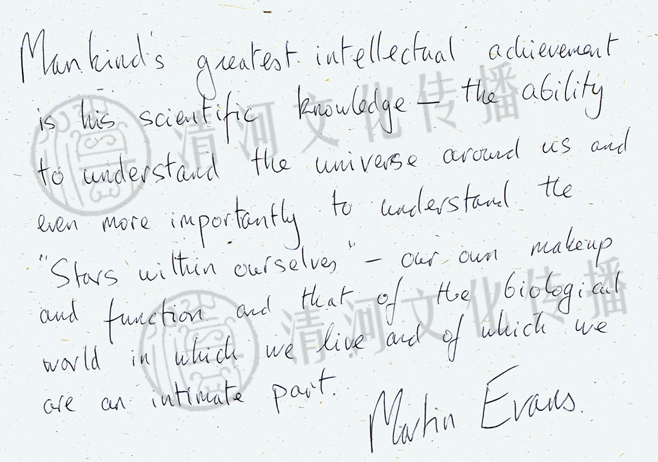 Mankind's greatest intellectual achievement
is his scientific knowledge – the ability
to understand the universe around us and
even more importantly to understand the
"Stars within ourselves" – our own makeup
and function and that of the biological
world in which we live and of which we
are an intimate part.
Martin Evans.
清河文化传播
清河文化传播